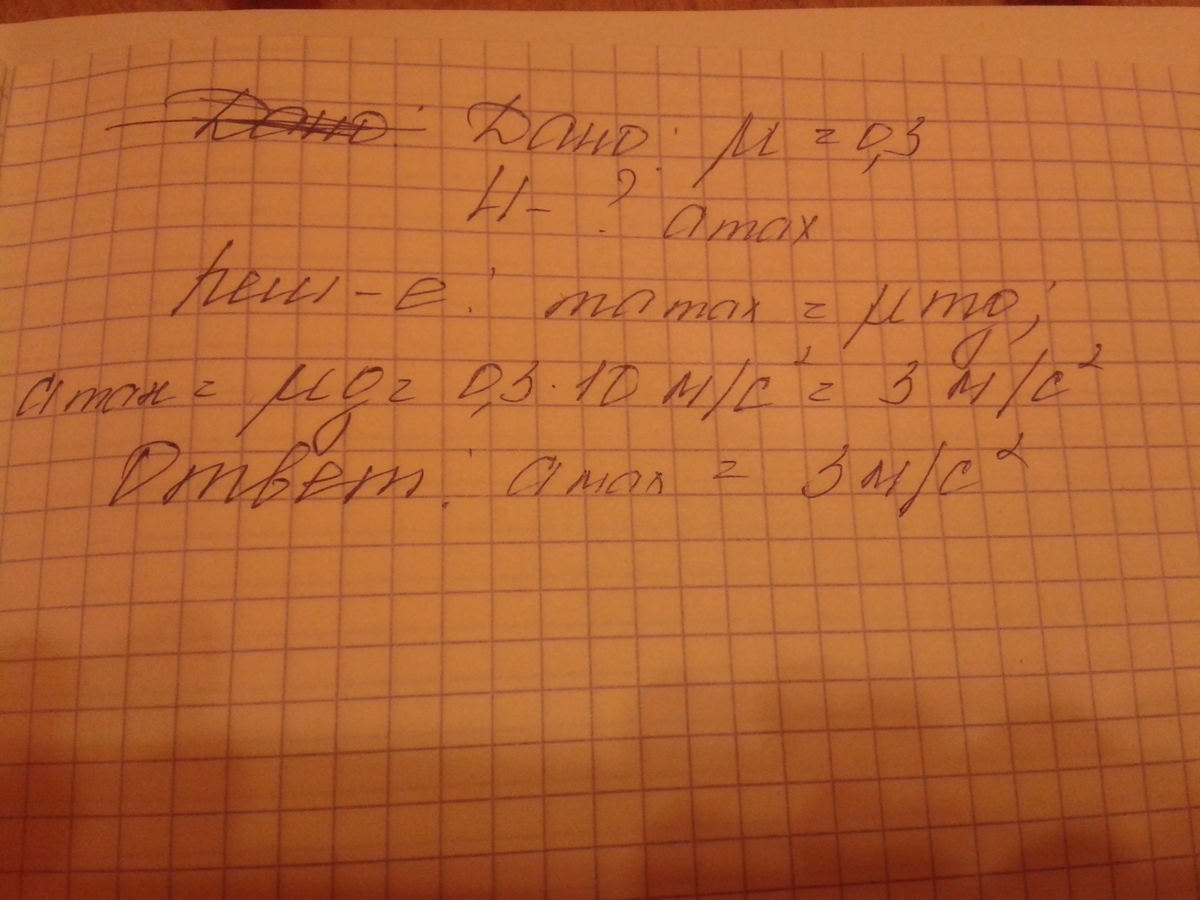 Дано: Дано: μ = 0,3
Н- ? a max
Реш-е: ma max = μmg;
a max = μg = 0,3 · 10 м/с² = 3 м/с²
Ответ: a max = 3 м/с²